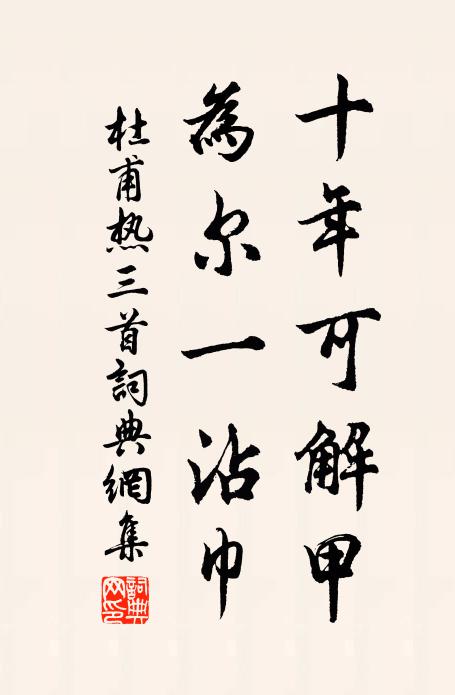 十年可解甲
為尔一沾巾
杜甫热三首詞典網集
詞典網印